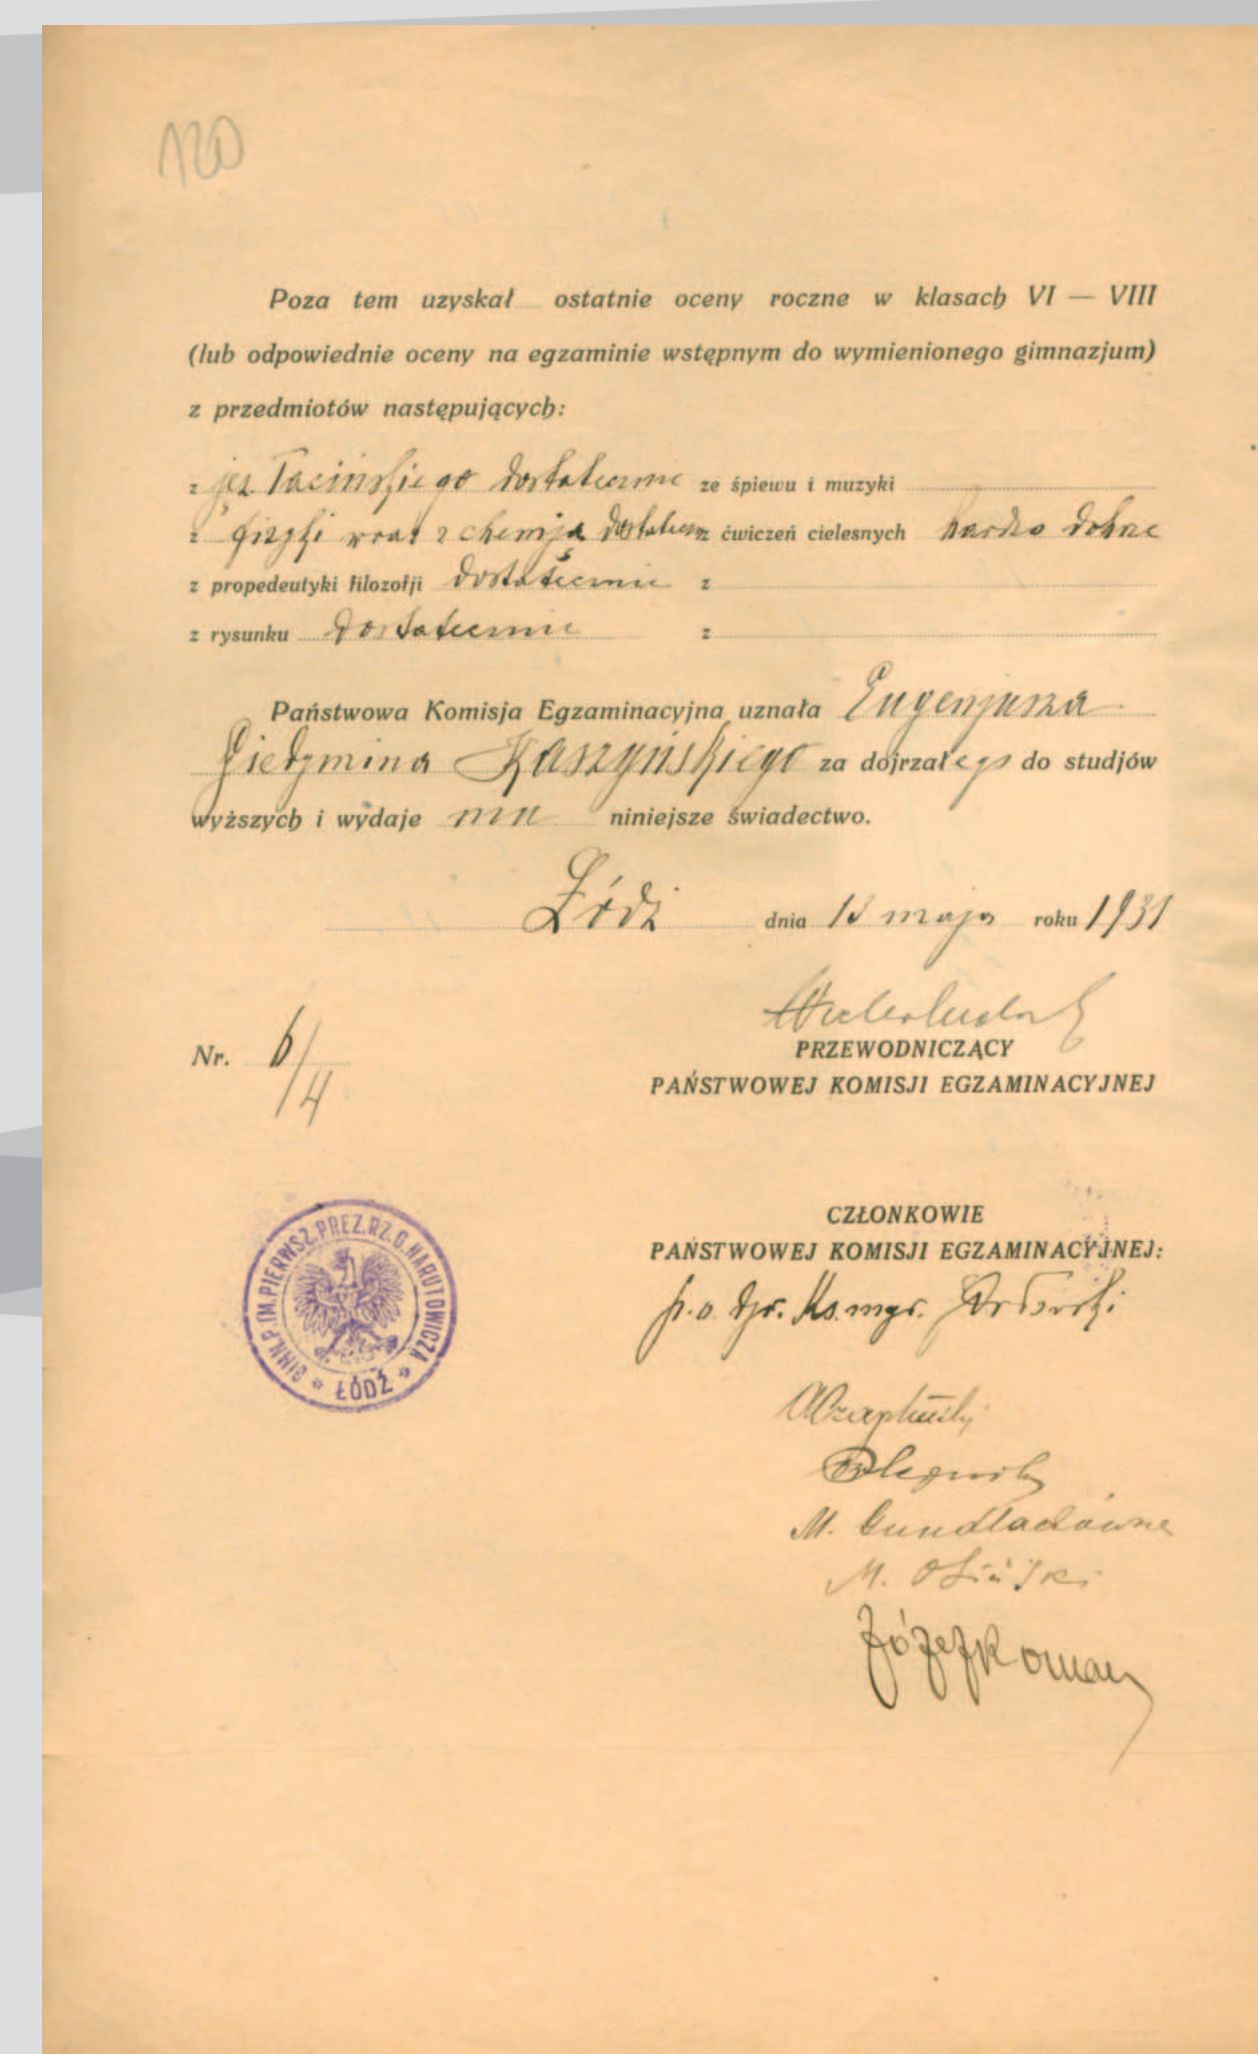 120
Poza tem uzyskał ostatnie oceny roczne w klasach VI — VIII
(lub odpowiednie oceny na egzaminie wstępnym do wymienionego gimnazjum)
z przedmiotów następujących:
z jęz. łacińskiego dostatecznie ze śpiewu i muzyki
z fizyki wraz z chemją dostateczn. z ćwiczeń cielesnych bardzo dobrze
z propedeutyki filozofji dostatecznie z
z rysunku dostatecznie z
Państwowa Komisja Egzaminacyjna uznała Eugenjusza
Giedymina Kaszyńskiego za dojrzałego do studjów
wyższych i wydaje mu niniejsze świadectwo.
Łódź dnia 13 maja roku 1931
Nr. 6/4
PRZEWODNICZĄCY
PAŃSTWOWEJ KOMISJI EGZAMINACYJNEJ
CZŁONKOWIE
PAŃSTWOWEJ KOMISJI EGZAMINACYJNEJ:
p.o. dyr. Ks. mgr.
M. Gundlachówna
M. Osiński
Józef Roman
GIMN. P. IM. PIERWSZ. PREZ. RZ. G. NARUTOWICZA
* ŁÓDŹ *